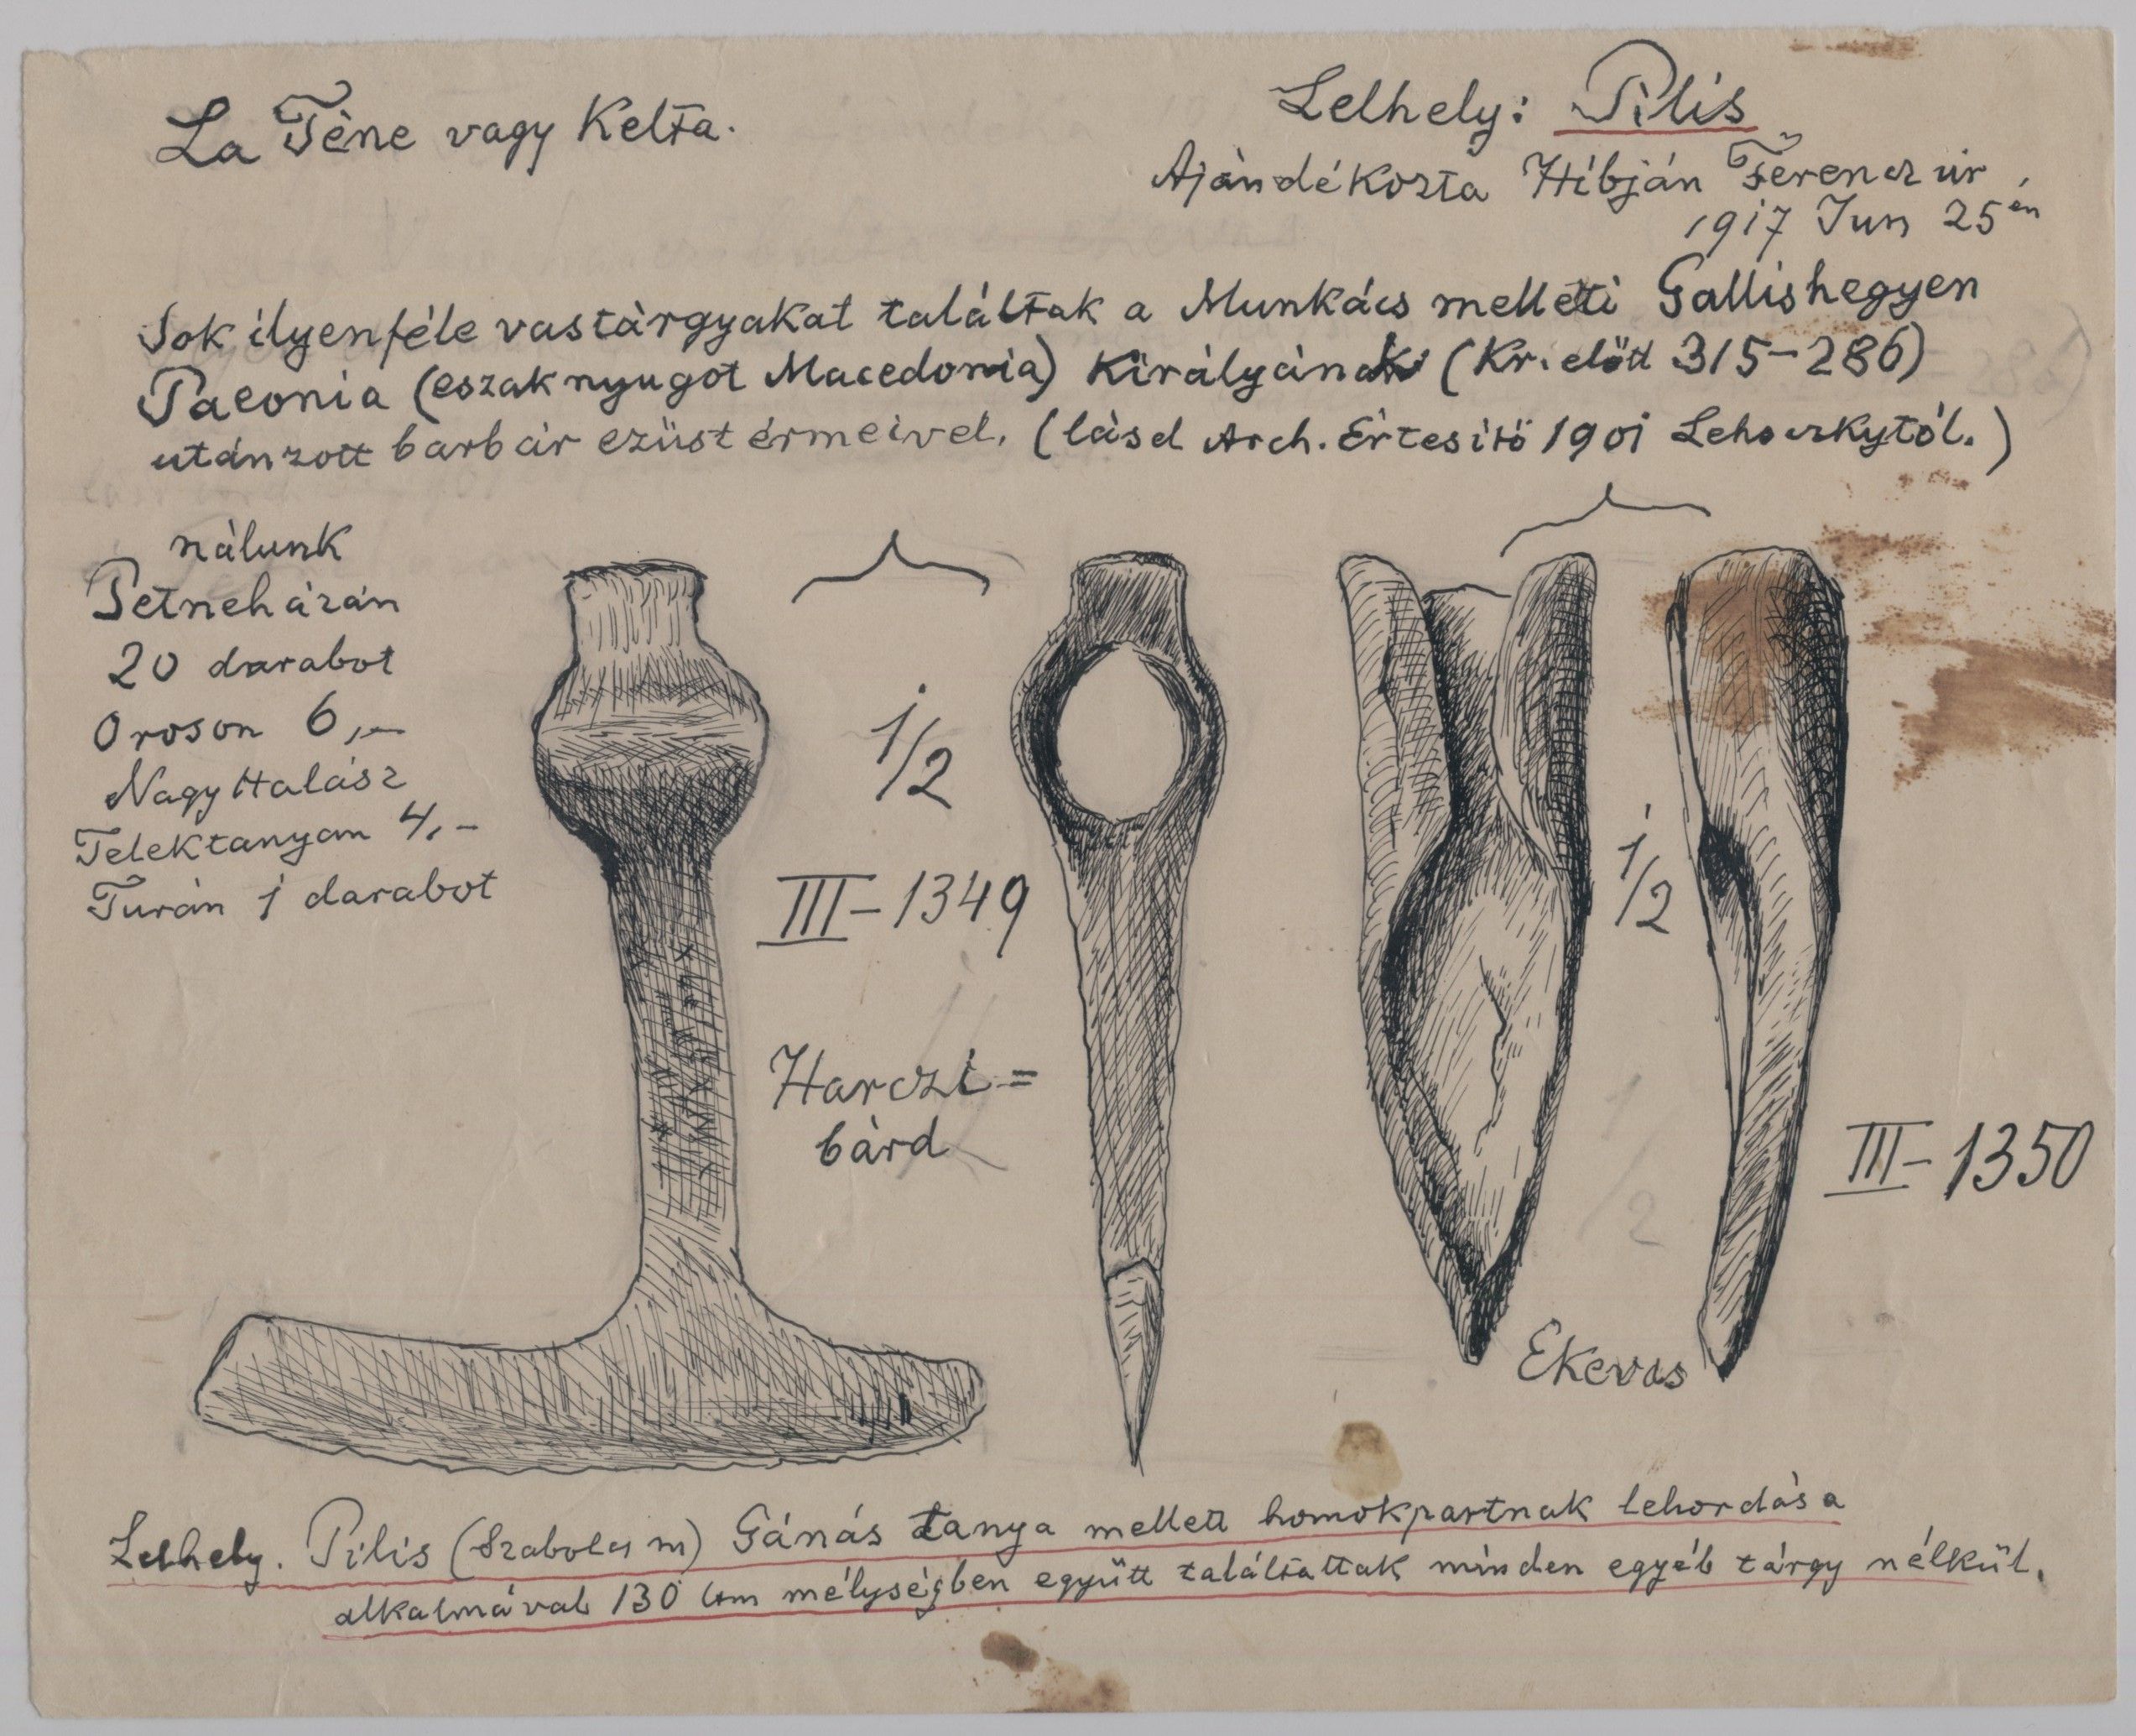 La Tène vagy Kelta.
Lelhely: Pilis
Ajándékozta Hibján Ferencz úr
1917 Jun 25én
Sok ilyenféle vastárgyakat találtak a Munkács melletti Gallishegyen
Paeonia (eszaknyugot Macedonia) Királyának (Kr. előtt 315-286)
utánzott barbár ezüst érmeivel. (lásd Arch. Értesitő 1901 Lehoczkytól.)
nálunk
Petneházán
20 darabot
Oroson 6,-
Nagy Halász
Telektanyán 4,-
Turán 1 darabot
1/2
III-1349
Harczi=
bárd
1/2
1/2
III-1350
Ekevas
Lelhely. Pilis (Szabolcs m) Gánás tanya mellett homokpartnak lehordása
alkalmával 130 cm mélységben együtt találtattak minden egyéb tárgy nélkül.